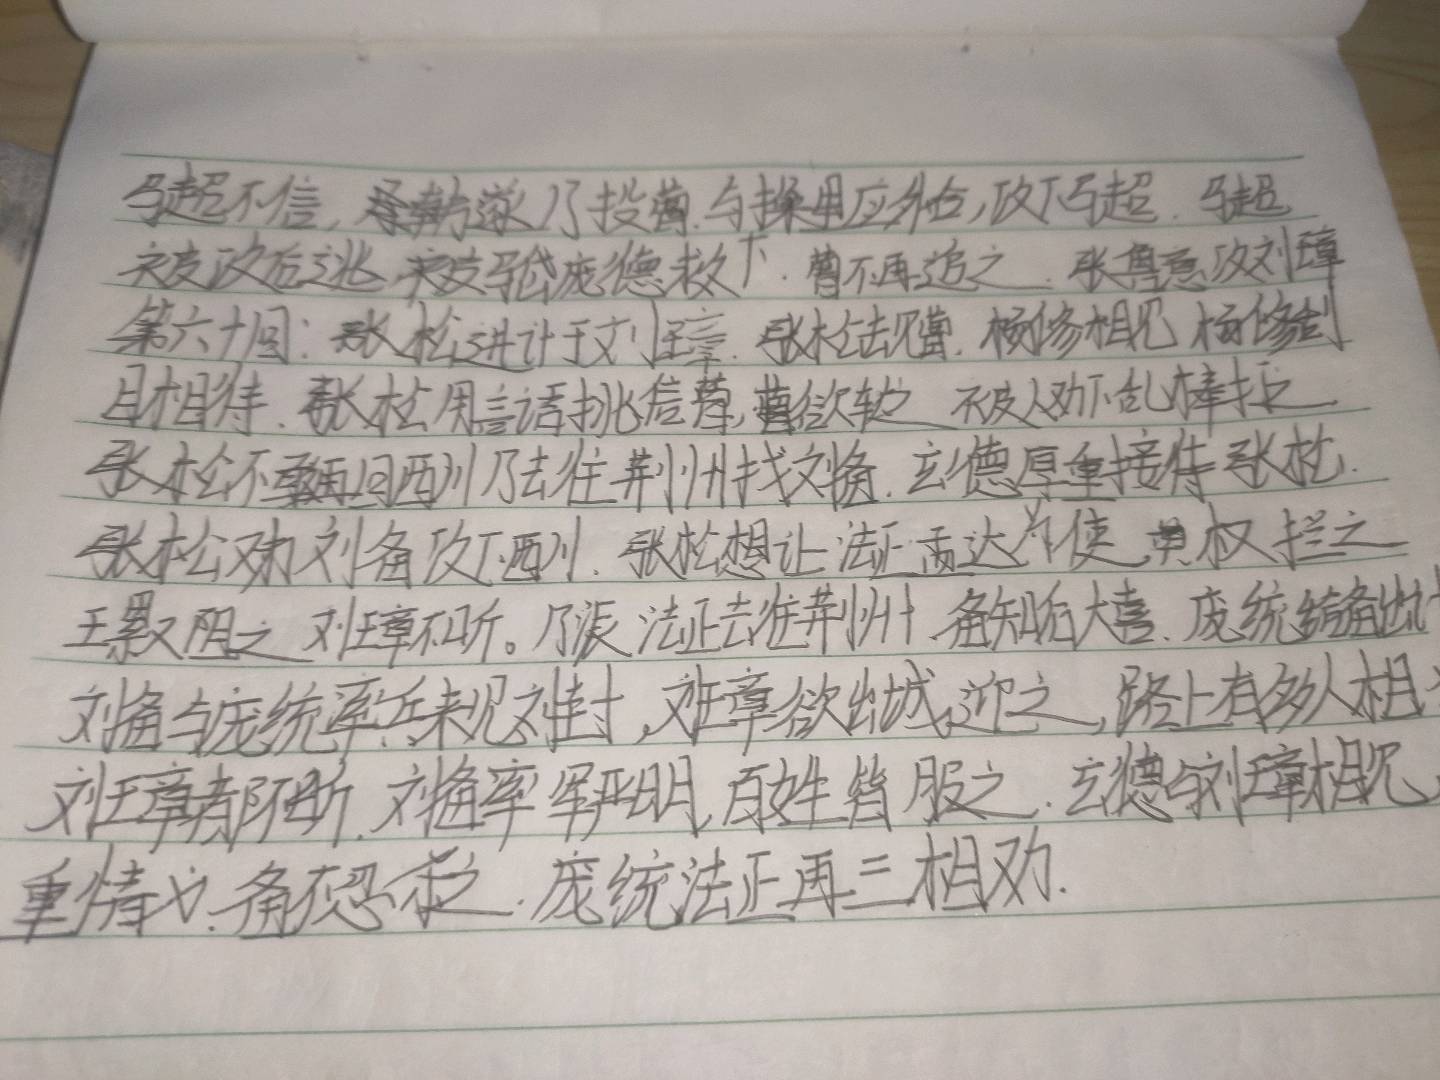 马超不信，韩遂乃投曹.与操里应外合,攻下马超.马超
被攻后逃 被马岱庞德救下.曹不再追之.张鲁意攻刘璋
第六十回：张松进计于刘璋.张松去见曹.杨修相见 杨修刮
目相待.张松用言语挑信曹,曹欲斩之 被人劝下乱棒打之
张松不敢再回西川乃去往荆州找刘备.玄德厚重接待张松.
张松劝刘备攻下西川.张松想让法正孟达为使,黄权拦之
王累又阻之 刘璋不听。乃派法正去往荆州.备知后大喜.庞统给备出计
刘备与庞统率兵来见刘封,刘璋欲出城迎之,路上有多人相
刘璋都不听.刘备率军严明,百姓皆服之.玄德与刘璋相见,
重情义.备不忍杀之.庞统法正再三相劝.